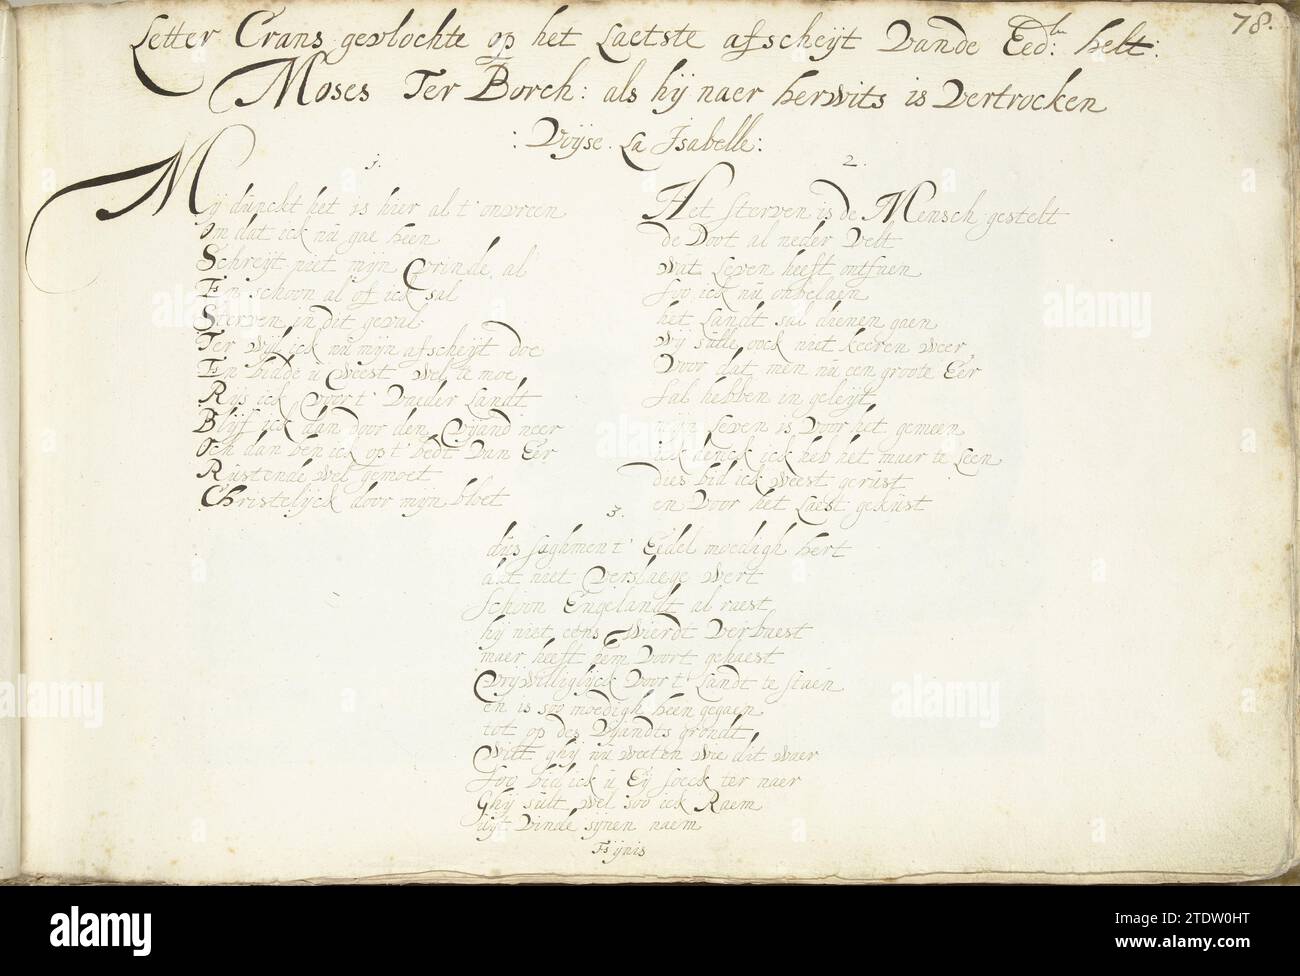 78.
Letter Crans gevlochte op het Laetste afscheijt Vande Eed:le helt:
Moses Ter Borch: als hij naer herwits is Vertrocken
: Voijse. La Isabelle:
1.
Mij dunckt het is hier al t' onvreen
Om dat ick nu gae heen
Schreijt niet mijn Vrinde al
En schoon al of ick sal
Sterven in dit geval
Ter wijl ick nu mijn afscheijt doe
En bidde u Weest Wel te moe
Rijs ick Voor t' Vaeder Landt
Blijf ick dan door den Vijand neer
Och dan ben ick op t' bedt Van Eer
Rustende Wel gemoet
Christelijck door mijn bloet
2.
Het Sterven is de Mensch gestelt
de Doot al neder Velt
Wat Leven heeft ontfaen
soo ick nu onbelaen
het Landt sal dienen gaen
Wij sulle oock niet keeren Weer
Voor dat men nu een groote Eer
sal hebben in geleijt
mijn Leven is Voor het gemeen
ick denck ick heb het maer te Leen
dies bid ick Weest gerust
en Voor het Laest gekust
3.
dus saghmen t' Eedel moedigh hert
dat niet Verslaege Wert
schoon Engelandt al raest
hij niet eens Wierdt Verbaest
maer heeft hem Voort gehaest
Vrijwilliglijck Voor t Landt te staen
en is soo moedigh heen gegaen
tot op des Vijandts grondt
Wilt ghij nu Weeten Wie dit Waer
soo bid ick u Eij soeck ter naer
Ghij sult Wel soo ick Raem
uijt Vinde sijnen naem
Fijnis
alamy
Image ID: 2TDW0HT
www.alamy.com